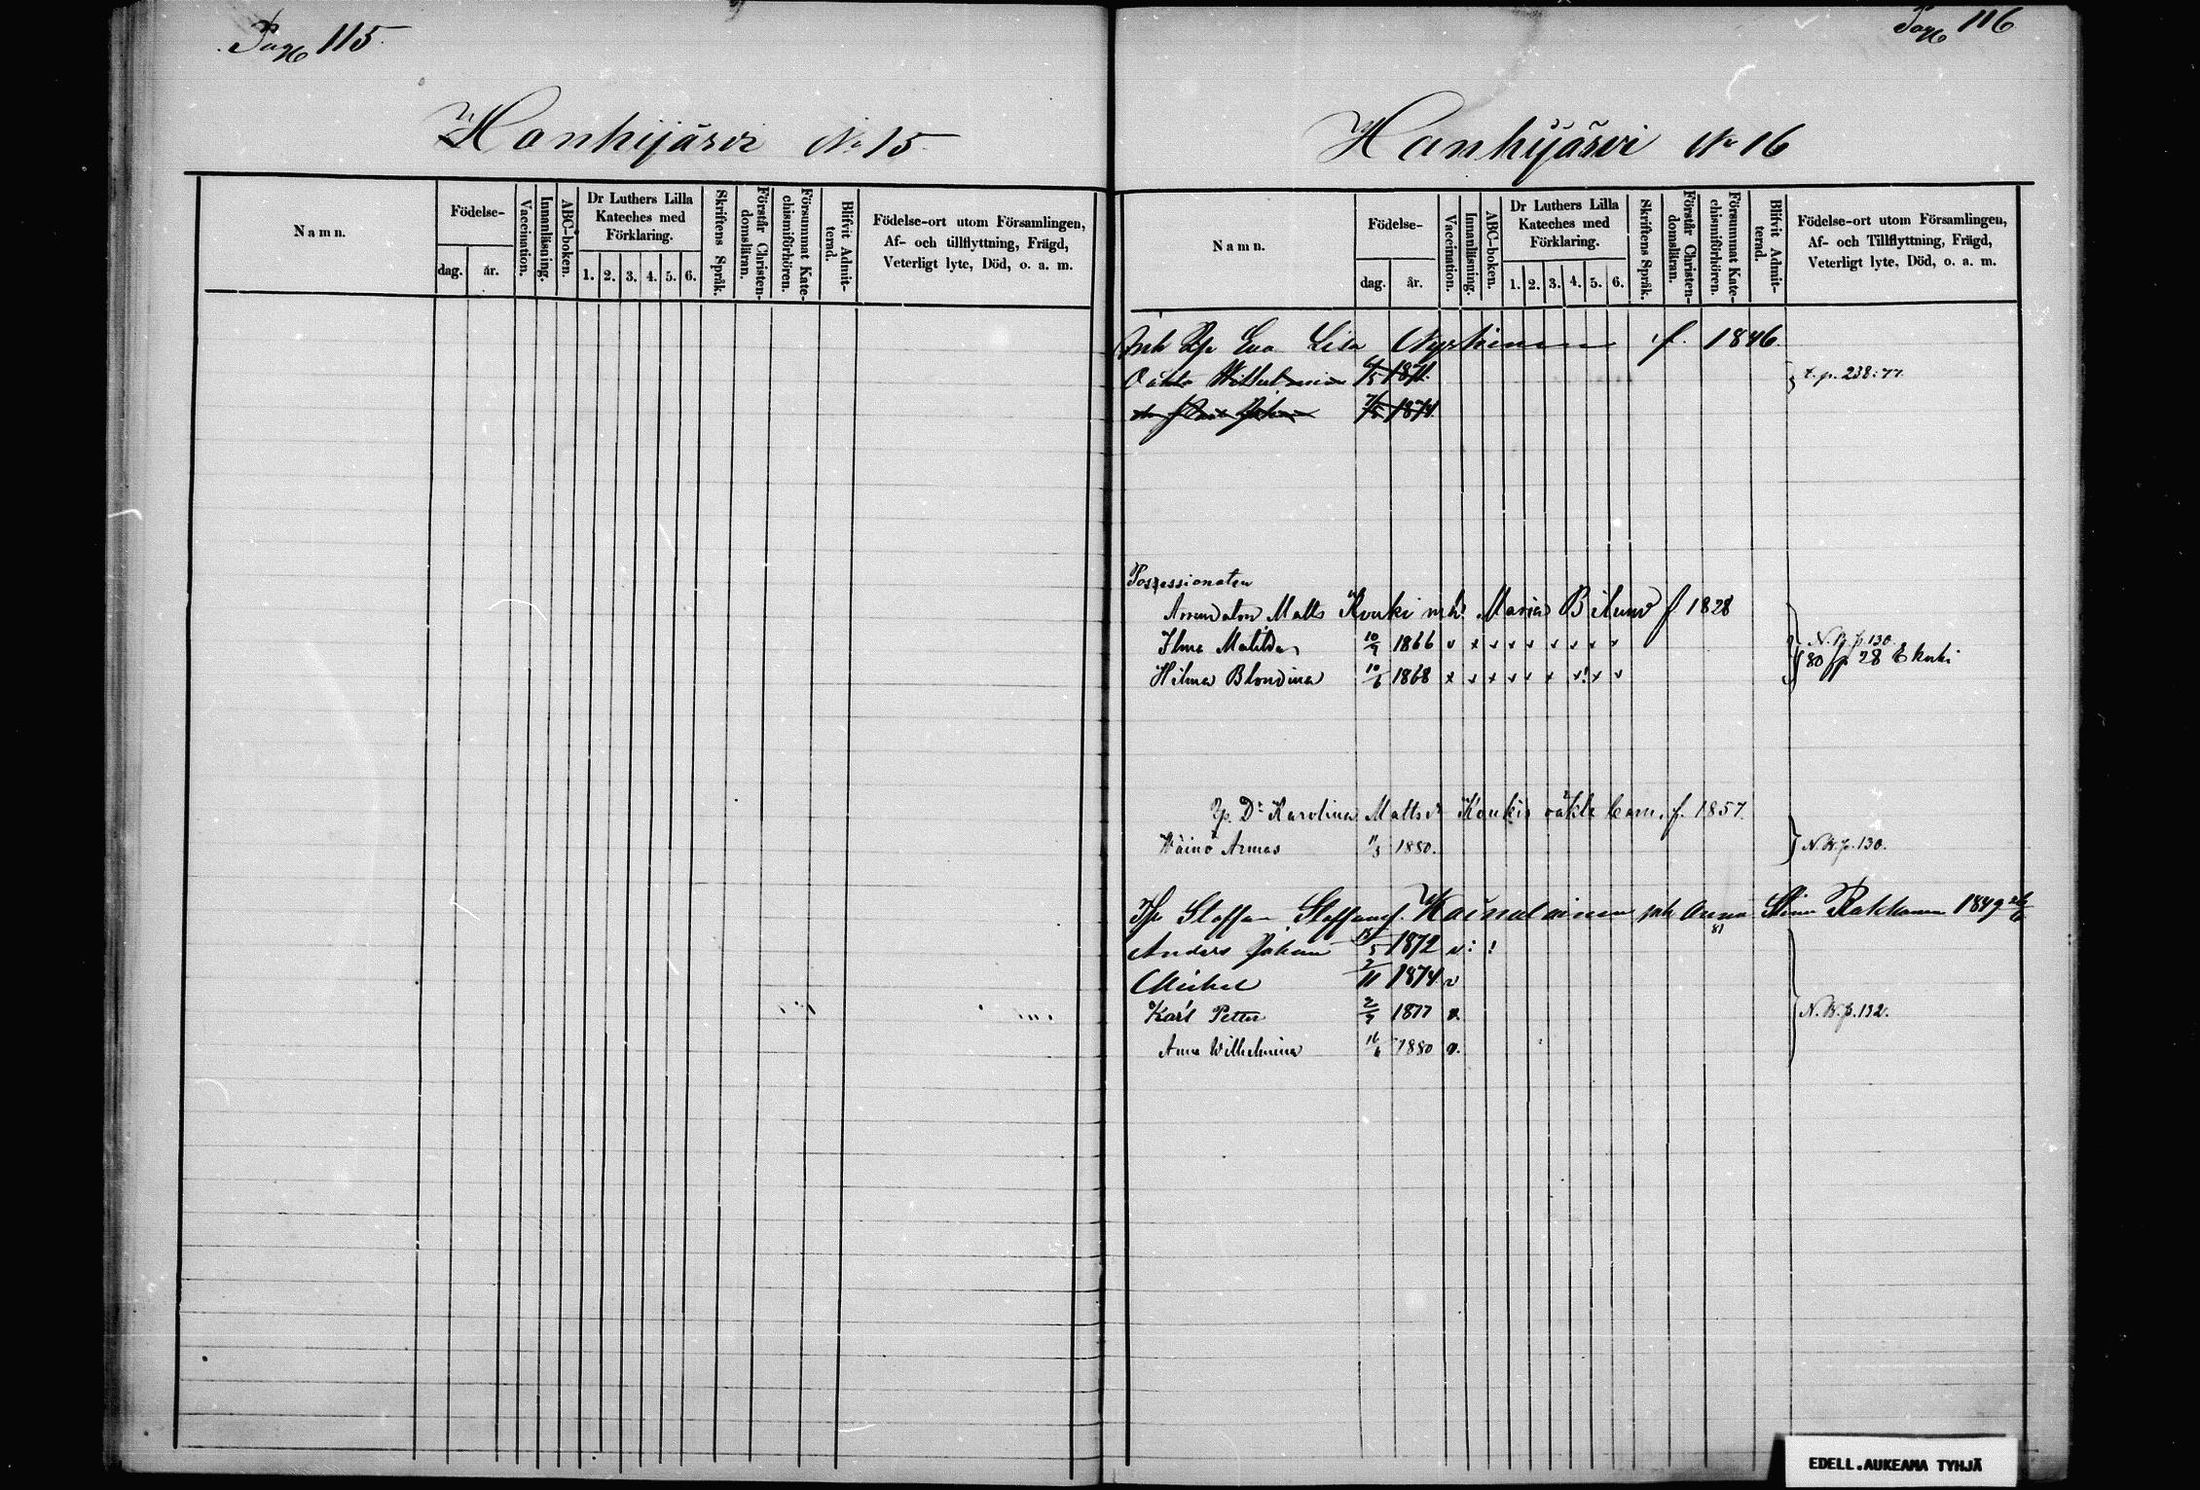 Pag 115
Hanhijärvi No 15
Namn.
Födelse-
dag.
år.
Vaccination.
Innanläsning.
ABC-boken.
Dr Luthers Lilla
Kateches med
Förklaring.
1. 2. 3. 4. 5. 6.
Skriftens Språk.
Förstår Christen-
domsläran.
Försummat Kate-
chismiförhören.
Blifvit Admit-
terad.
Födelse-ort utom Församlingen,
Af- och tillflyttning, Frägd,
Veterligt lyte, Död, o. a. m.
Pag 116
Hanhijärvi No 16
Namn.
Födelse-
dag.
år.
Vaccination.
Innanläsning.
ABC-boken.
Dr Luthers Lilla
Kateches med
Förklaring.
1. 2. 3. 4. 5. 6.
Skriftens Språk.
Förstår Christen-
domsläran.
Försummat Kate-
chismiförhören.
Blifvit Admit-
terad.
Födelse-ort utom Församlingen,
Af- och Tillflyttning, Frägd,
Veterligt lyte, Död, o. a. m.
Enk Eva Lisa f. 1846.
1871. t. p. 238:77
1874.
Possessionaten
Arrendatorn Matts Kouki Maria f 1828
Ilma Matilda 10/9 1866 v x x x x x x x x N. B. p. 130.
80 p 28
Hilma Blondina 10/6 1868 x x x x x x x! x x
Dr Karolina Mattsdr Koukis oäkta barn. f. 1857.
Wäinö Armas 11/3 1880. N. B. p. 130.
Staffan Staffansf. Kainulainen Anna Stina 1849
81
Anders Johan 15/5 1872 v : !
Mickel 2/11 1874 v
Karl Petter 2/9 1877 v. N. B. p. 132.
Anna Wilhelmina 16/6 1880 v.
EDELL.AUKEAMA TYHJÄ